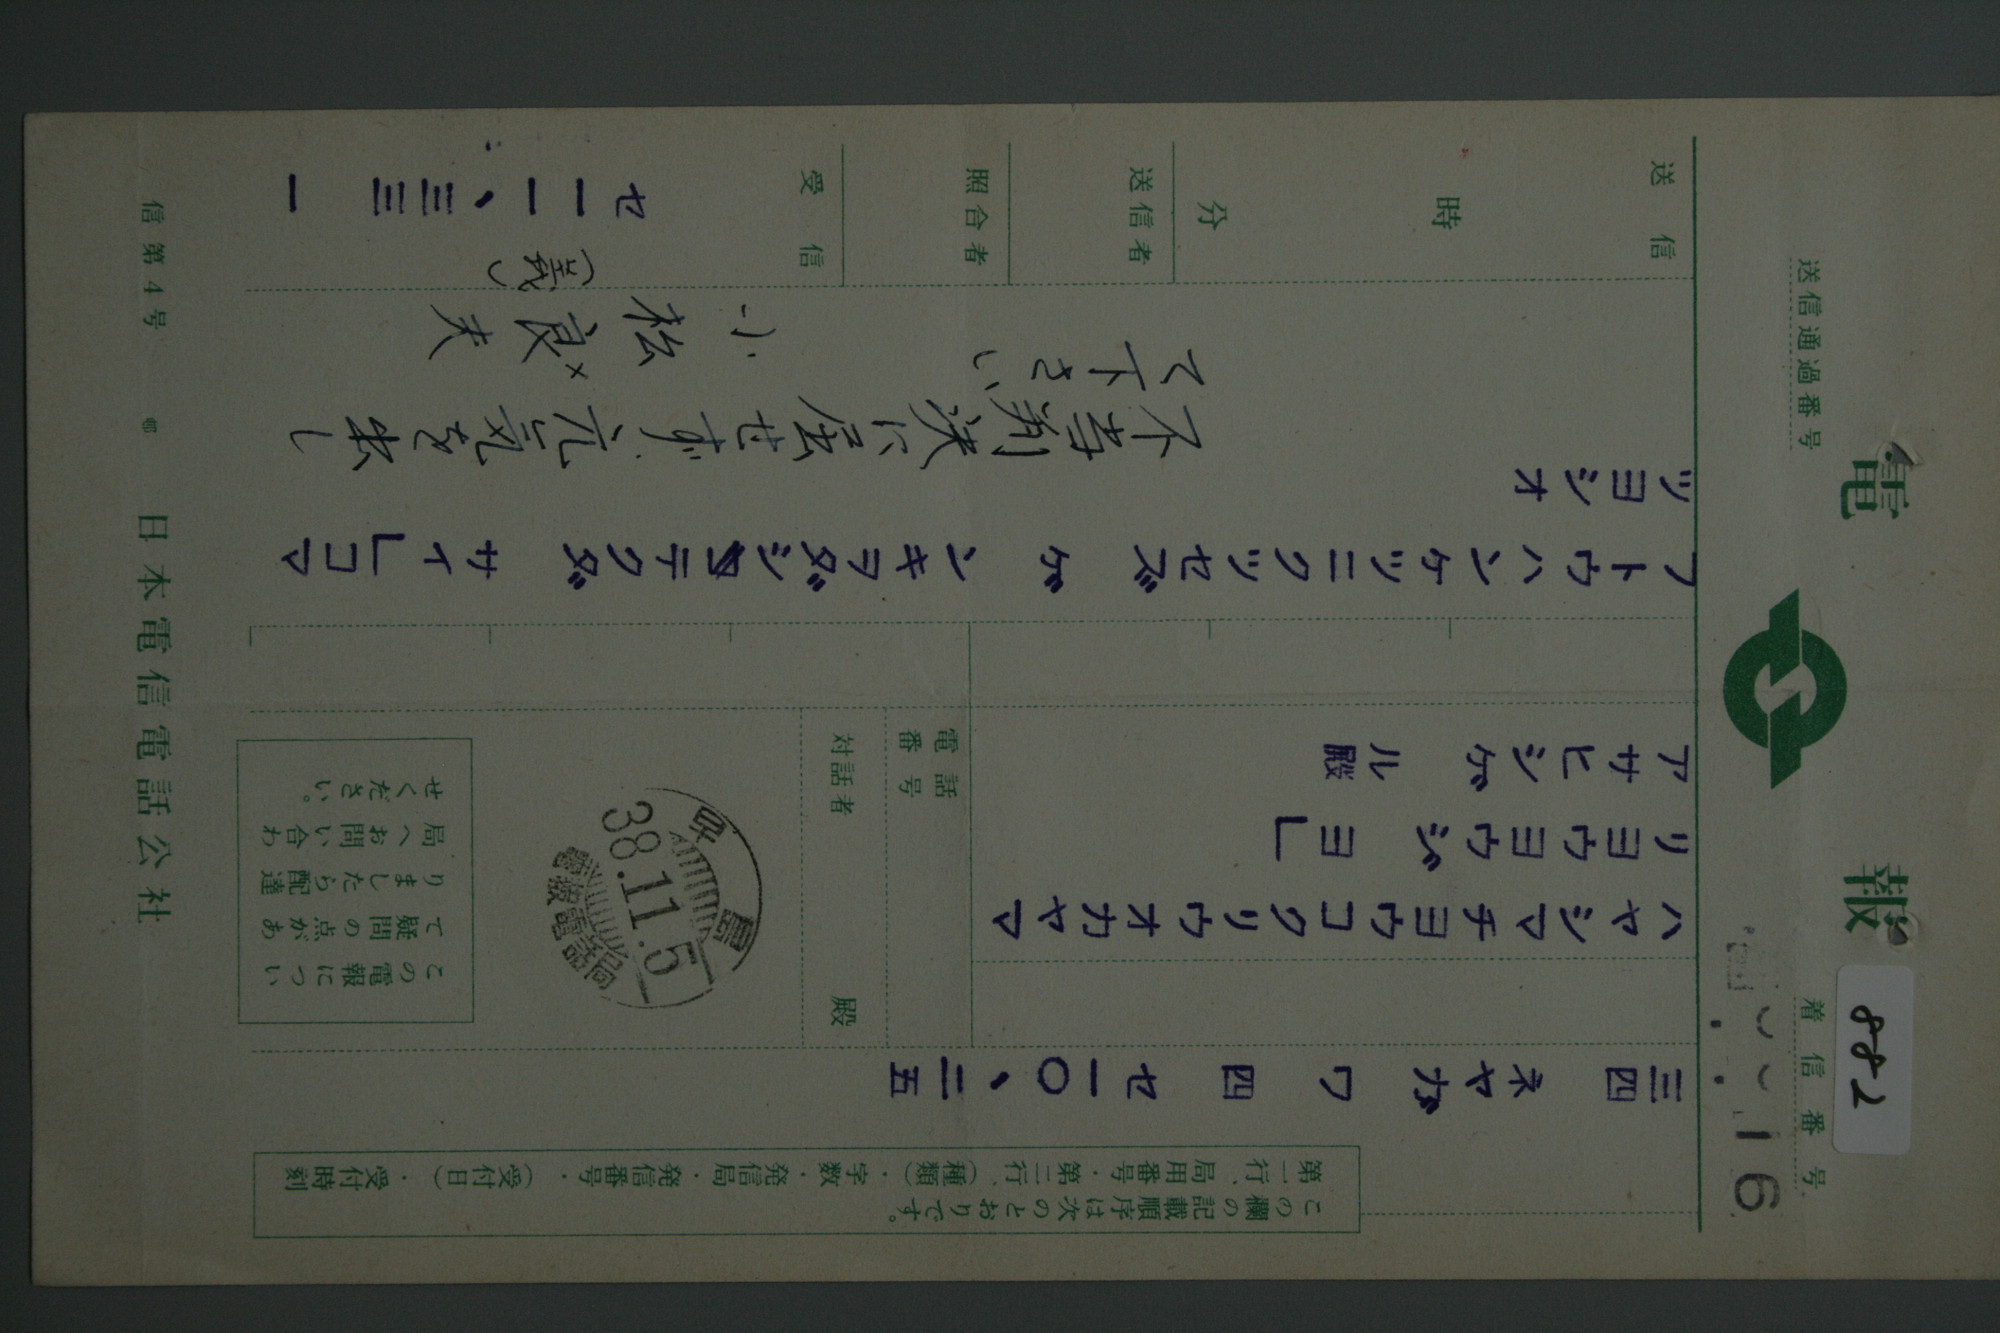 電報
882
着信番号
16
送信通過番号
この欄の記載順序は次のとおりです。
第一行、局用番号・第二行、(種類)・字数・発信局・発信番号・(受付日)・受付時刻
三四 ネヤガワ 四 セ一〇、二五
ハヤシマチヨウコクリウオカヤマ
リヨウヨウジヨ」
アサヒシゲル殿
電話番号
対話者 殿
早島
38.11.5
電報電話局
この電報につい
て疑問の点があ
りましたら配達
局へお問い合わ
せください。
フトウハンケツニクツセズ ゲンキヲダシテクダサイ」コマ
ツヨシオ
不当判決に屈せず、元気を出し
て下さい
小松良夫
送信
時
分
送信者
照合者
受信
セ一一、三三 一
信第4号
日本電信電話公社